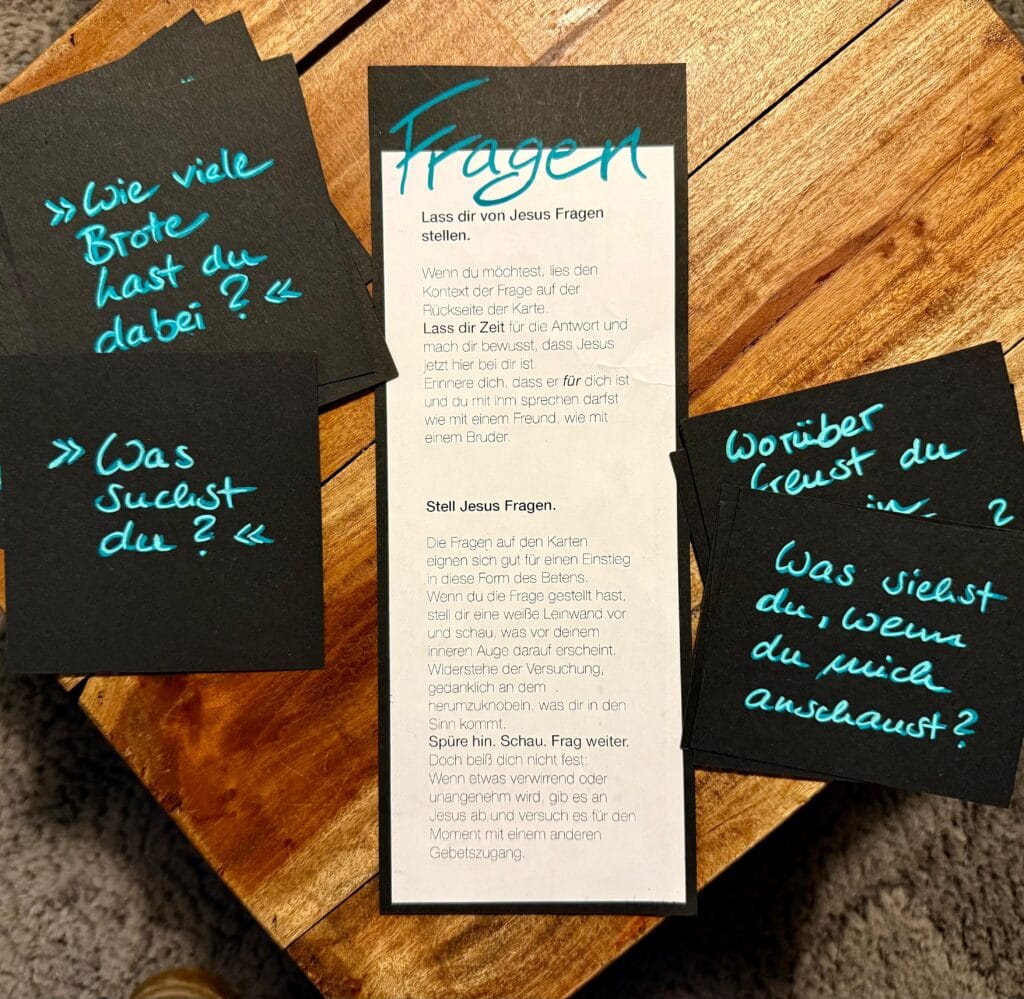 Fragen
Lass dir von Jesus Fragen
stellen.
Wenn du möchtest, lies den
Kontext der Frage auf der
Rückseite der Karte.
Lass dir Zeit für die Antwort und
mach dir bewusst, dass Jesus
jetzt hier bei dir ist.
Erinnere dich, dass er für dich ist
und du mit ihm sprechen darfst
wie mit einem Freund, wie mit
einem Bruder.
Stell Jesus Fragen.
Die Fragen auf den Karten
eignen sich gut für einen Einstieg
in diese Form des Betens.
Wenn du die Frage gestellt hast,
stell dir eine weiße Leinwand vor
und schau, was vor deinem
inneren Auge darauf erscheint.
Widerstehe der Versuchung,
gedanklich an dem
herumzuknobeln, was dir in den
Sinn kommt.
Spüre hin. Schau. Frag weiter.
Doch beiß dich nicht fest:
Wenn etwas verwirrend oder
unangenehm wird, gib es an
Jesus ab und versuch es für den
Moment mit einem anderen
Gebetszugang.
»Wie viele
Brote
hast du
dabei?«
»Was
suchst
du?«
Worüber
freust du
?
Was siehst
du, wenn
du mich
anschaust?